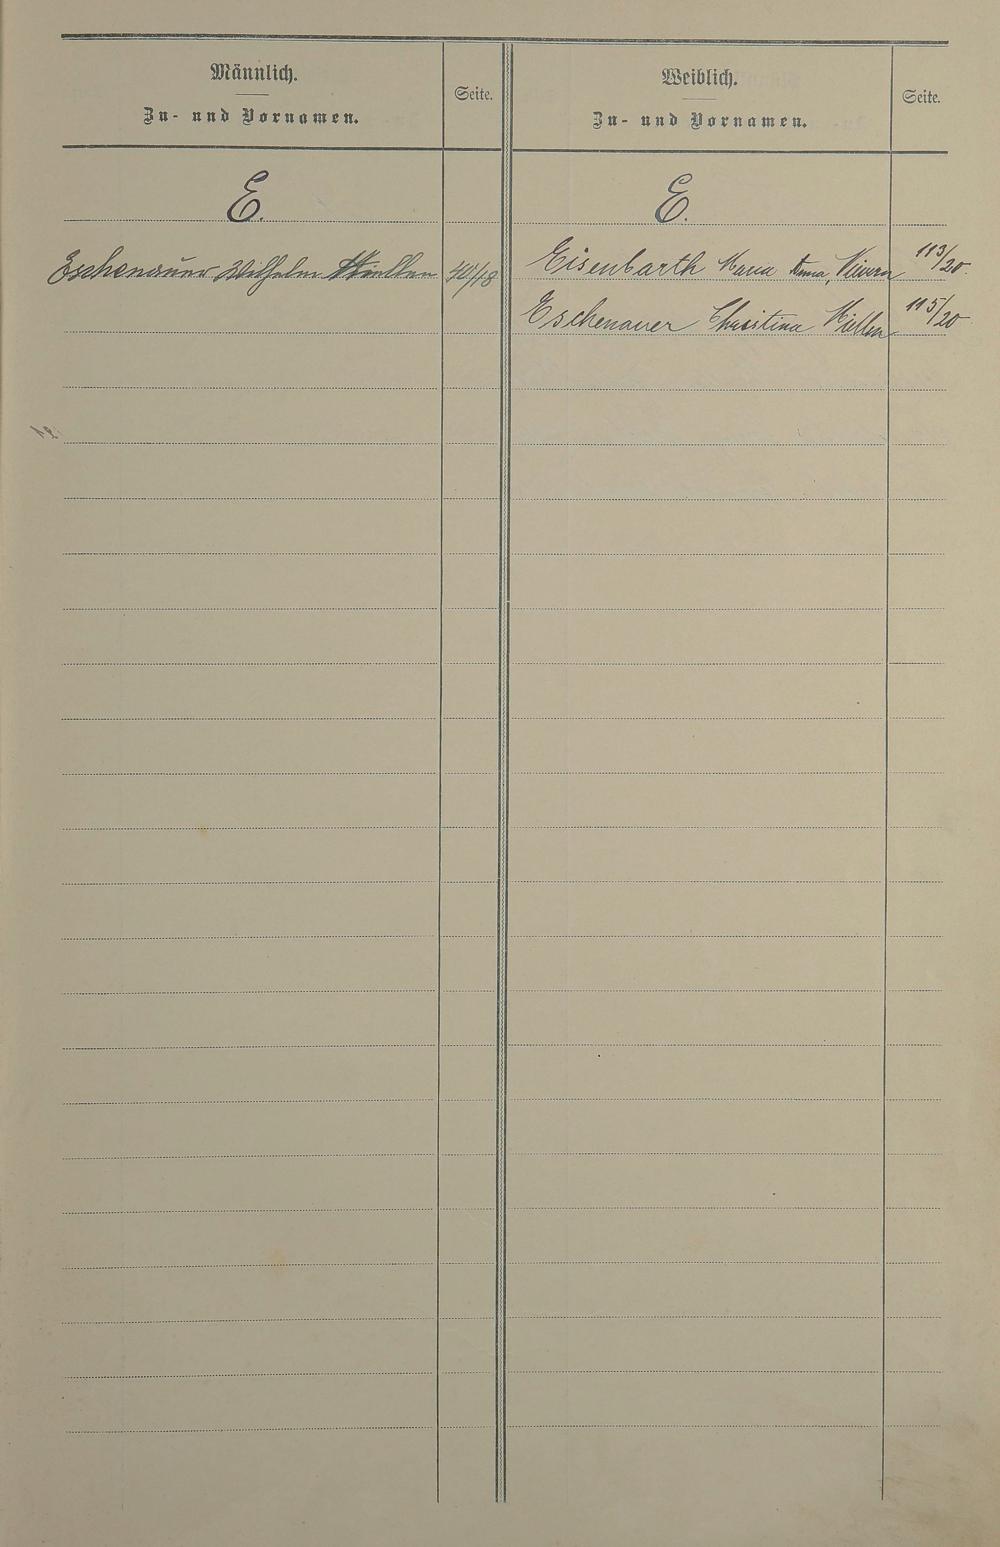 Männlich.
Zu- und Vornamen.
Seite.
E.
Eschenauer Wilhelm Miellen
Weiblich.
Zu- und Vornamen.
Seite.
E.
Eisenbarth Maria Anna, Nievern 113/20.
Eschenauer Christina Miellen 115/20